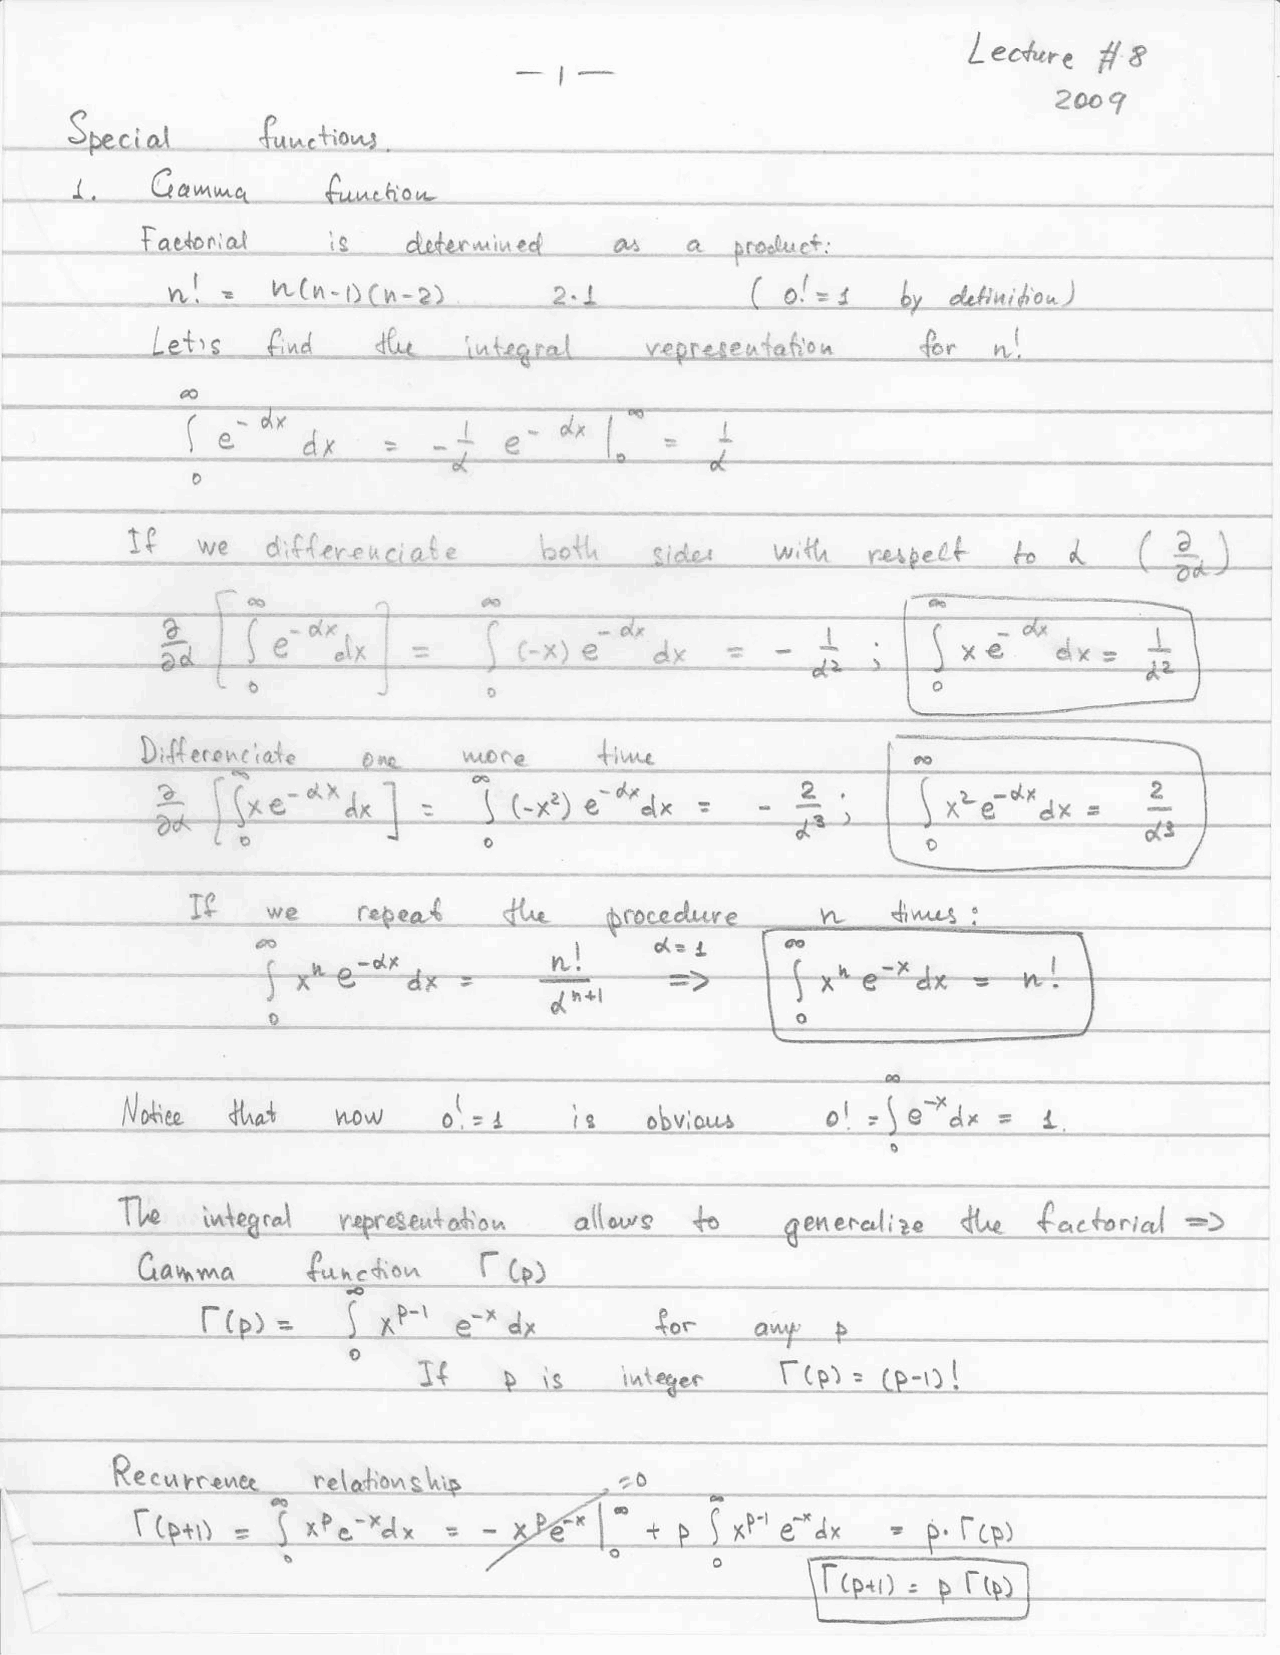 Lecture #8
— 1 —
2009
Special functions.
1. Gamma function
Factorial is determined as a product:
n! = n(n-1)(n-2) 2·1 ( 0! = 1 by definition)
Let's find the integral representation for n!
∫₀^∞ e^{-αx} dx = -1/α e^{-αx} |₀^∞ = 1/α
If we differenciate both sides with respect to α (∂/∂α)
∂/∂α [∫₀^∞ e^{-αx} dx] = ∫₀^∞ (-x) e^{-αx} dx = - 1/α² ; ∫₀^∞ x e^{-αx} dx = 1/α²
Differenciate one more time
∂/∂α [∫₀^∞ x e^{-αx} dx] = ∫₀^∞ (-x²) e^{-αx} dx = - 2/α³ ; ∫₀^∞ x² e^{-αx} dx = 2/α³
If we repeat the procedure n times:
∫₀^∞ xⁿ e^{-αx} dx = n!/α^{n+1} α=1 => ∫₀^∞ xⁿ e^{-x} dx = n!
Notice that now 0! = 1 is obvious 0! = ∫₀^∞ e^{-x} dx = 1.
The integral representation allows to generalize the factorial =>
Gamma function Γ(p)
Γ(p) = ∫₀^∞ x^{p-1} e^{-x} dx for any p
If p is integer Γ(p) = (p-1)!
Recurrence relationship
Γ(p+1) = ∫₀^∞ x^p e^{-x} dx = - x^p e^{-x} |₀^∞ =0 + p ∫₀^∞ x^{p-1} e^{-x} dx = p · Γ(p)
Γ(p+1) = p Γ(p)